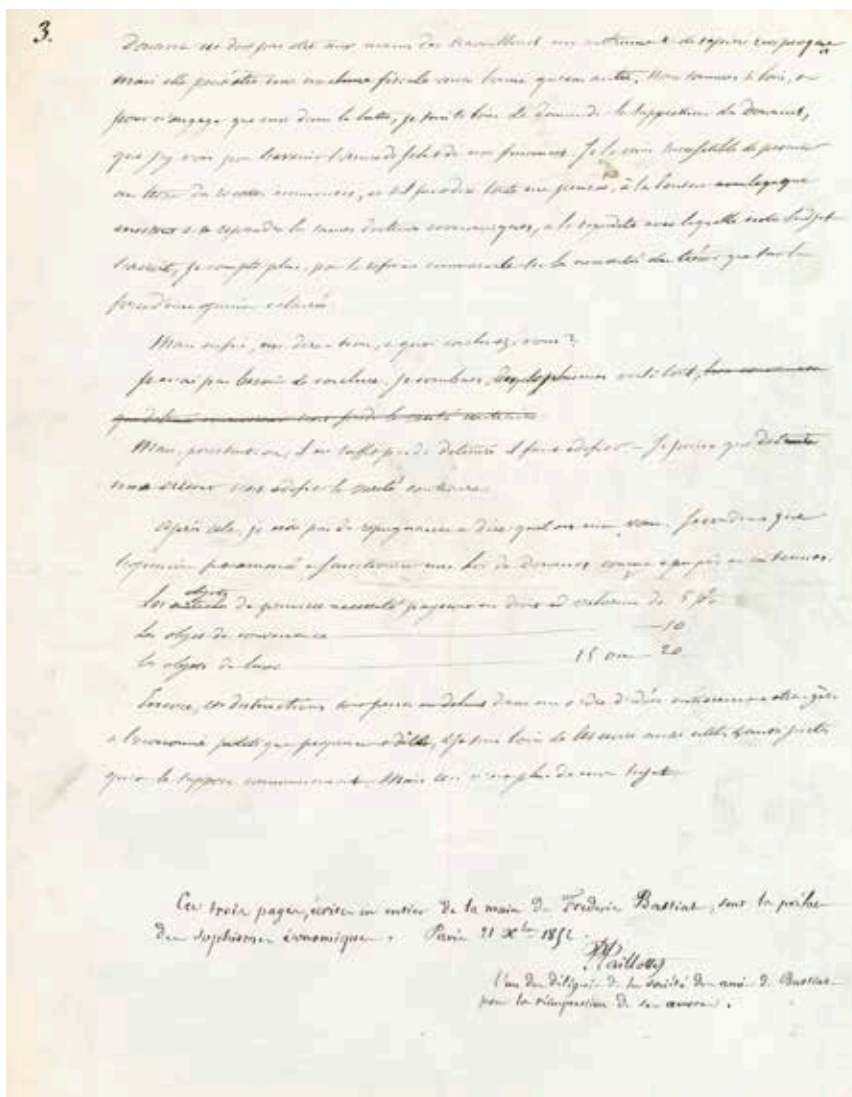 3.
Douane ne doit pas être aux mains des travailleurs un instrument de rapine réciproque
mais elle peut être une machine fiscale aussi bonne qu'une autre. Nous sommes si loin, ou
pour n'engager que moi dans la lutte, je suis si loin de demander la suppression des Douanes,
que j'y vois pour l'avenir l'ancre de salut de nos finances. Je les crois susceptibles de procurer
au trésor des recettes immenses, et s'il faut dire toute ma pensée, à la lenteur avec laquelle
se répandre les saines doctrines économiques, à la rapidité avec laquelle notre budget
s'accroît, je compte plus, pour la réforme commerciale sur les nécessités du trésor que sur la
force d'une opinion éclairée.
Mais enfin, me dira-t-on, à quoi concluez-vous ?
Je n'ai pas besoin de conclure. Je combats des sophismes voilà tout,
Mais, poursuit-on, il ne suffit pas de détruire il faut édifier — Je pense que détruire
une erreur c'est édifier la vérité contraire.
Après cela, je n'ai pas de répugnance à dire quel est mon vœu. Je voudrais que
l'opinion fut amenée à sanctionner une loi de douanes conçue à peu près en ces termes.
Les objets de première nécessité payeront un droit ad valorem de 5 p%
Les objets de convenance 10
Les objets de luxe 15 ou 20
Encore, ces distinctions sont prises dans un ordre d'idées entièrement étrangères
à l'économie politique proprement dite, et je suis loin de les croire aussi utiles et aussi justes
qu'on le suppose communément. Mais ceci n'est plus de mon sujet.
Ces trois pages, écrites en entier de la main de Frédéric Bastiat, sont la préface
des sophismes économiques. Paris 21 Xbre 1852.
Paillottet
l'un des délégués de la société des amis de Bastiat
pour la réimpression de ses œuvres.